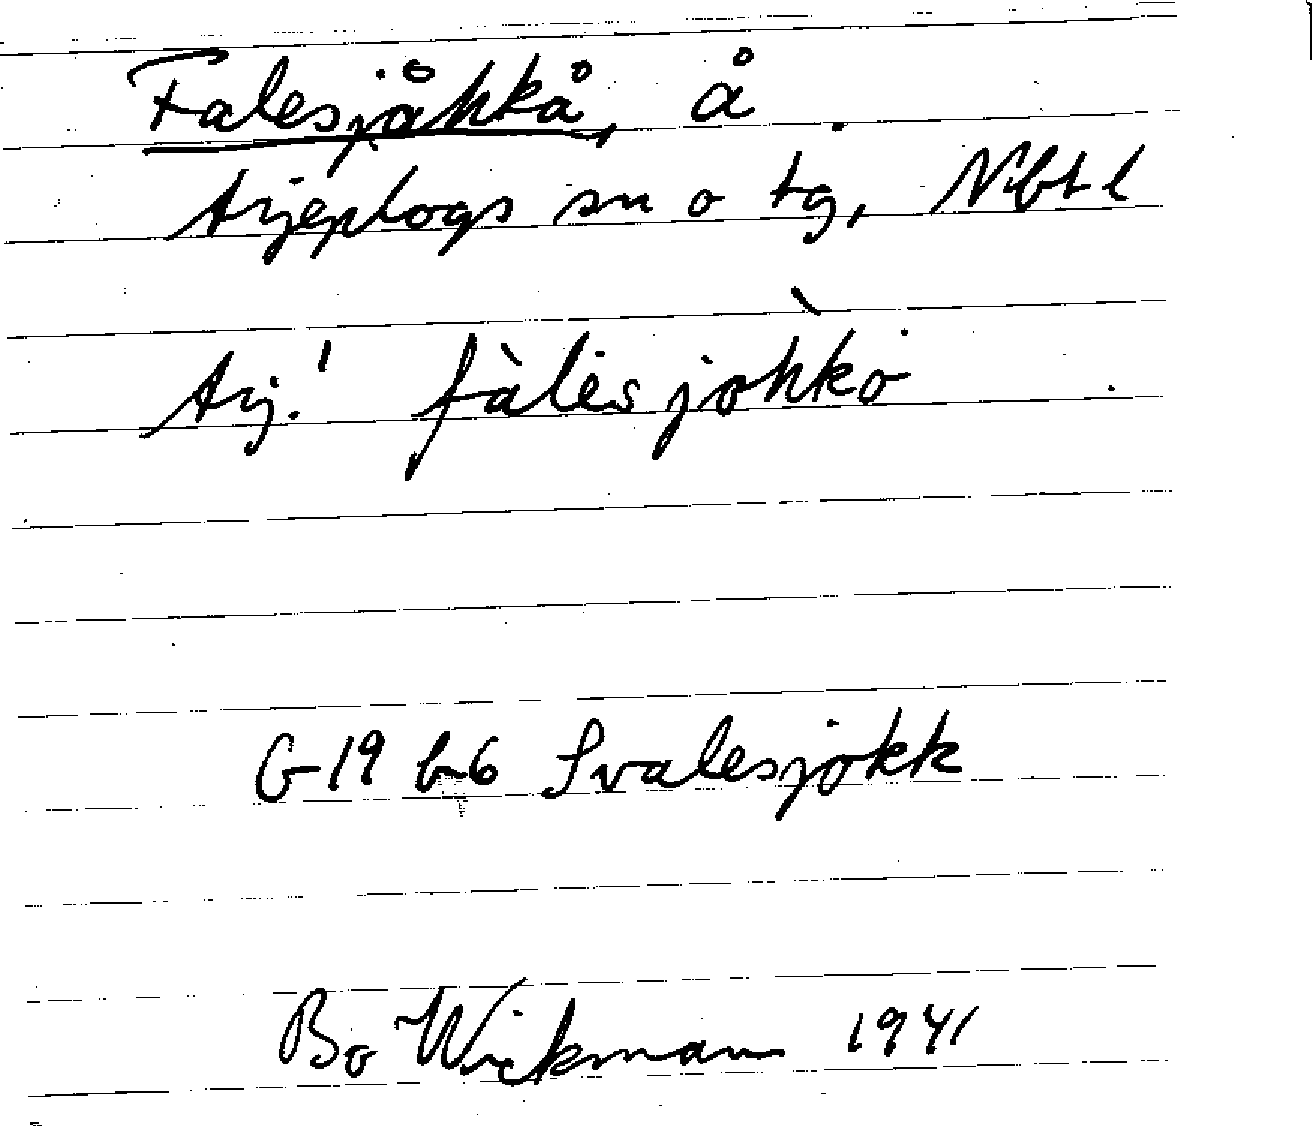 Falesjåkkå, å
Arjeplogs sn o tg, Nbtl
Arj.! fàlesjòhko
G-19 b-6 Svalesjokk
Bo Wickman 1941